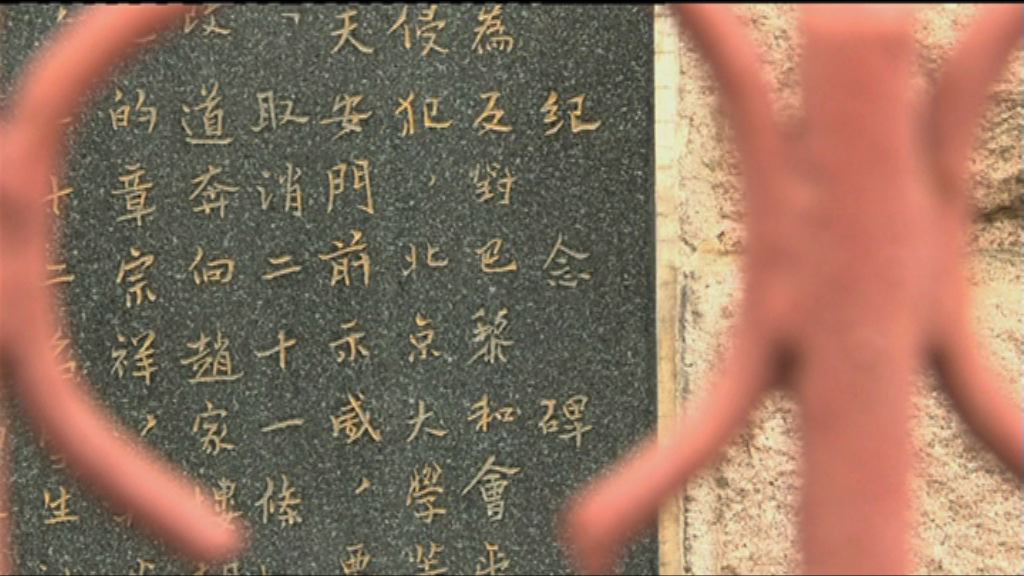 紀念碑
為反對巴黎和會
侵犯,北京大學
天安門前示威,要
取消二十一條
道奔向趙家樓
的章宗祥,
十二名
生